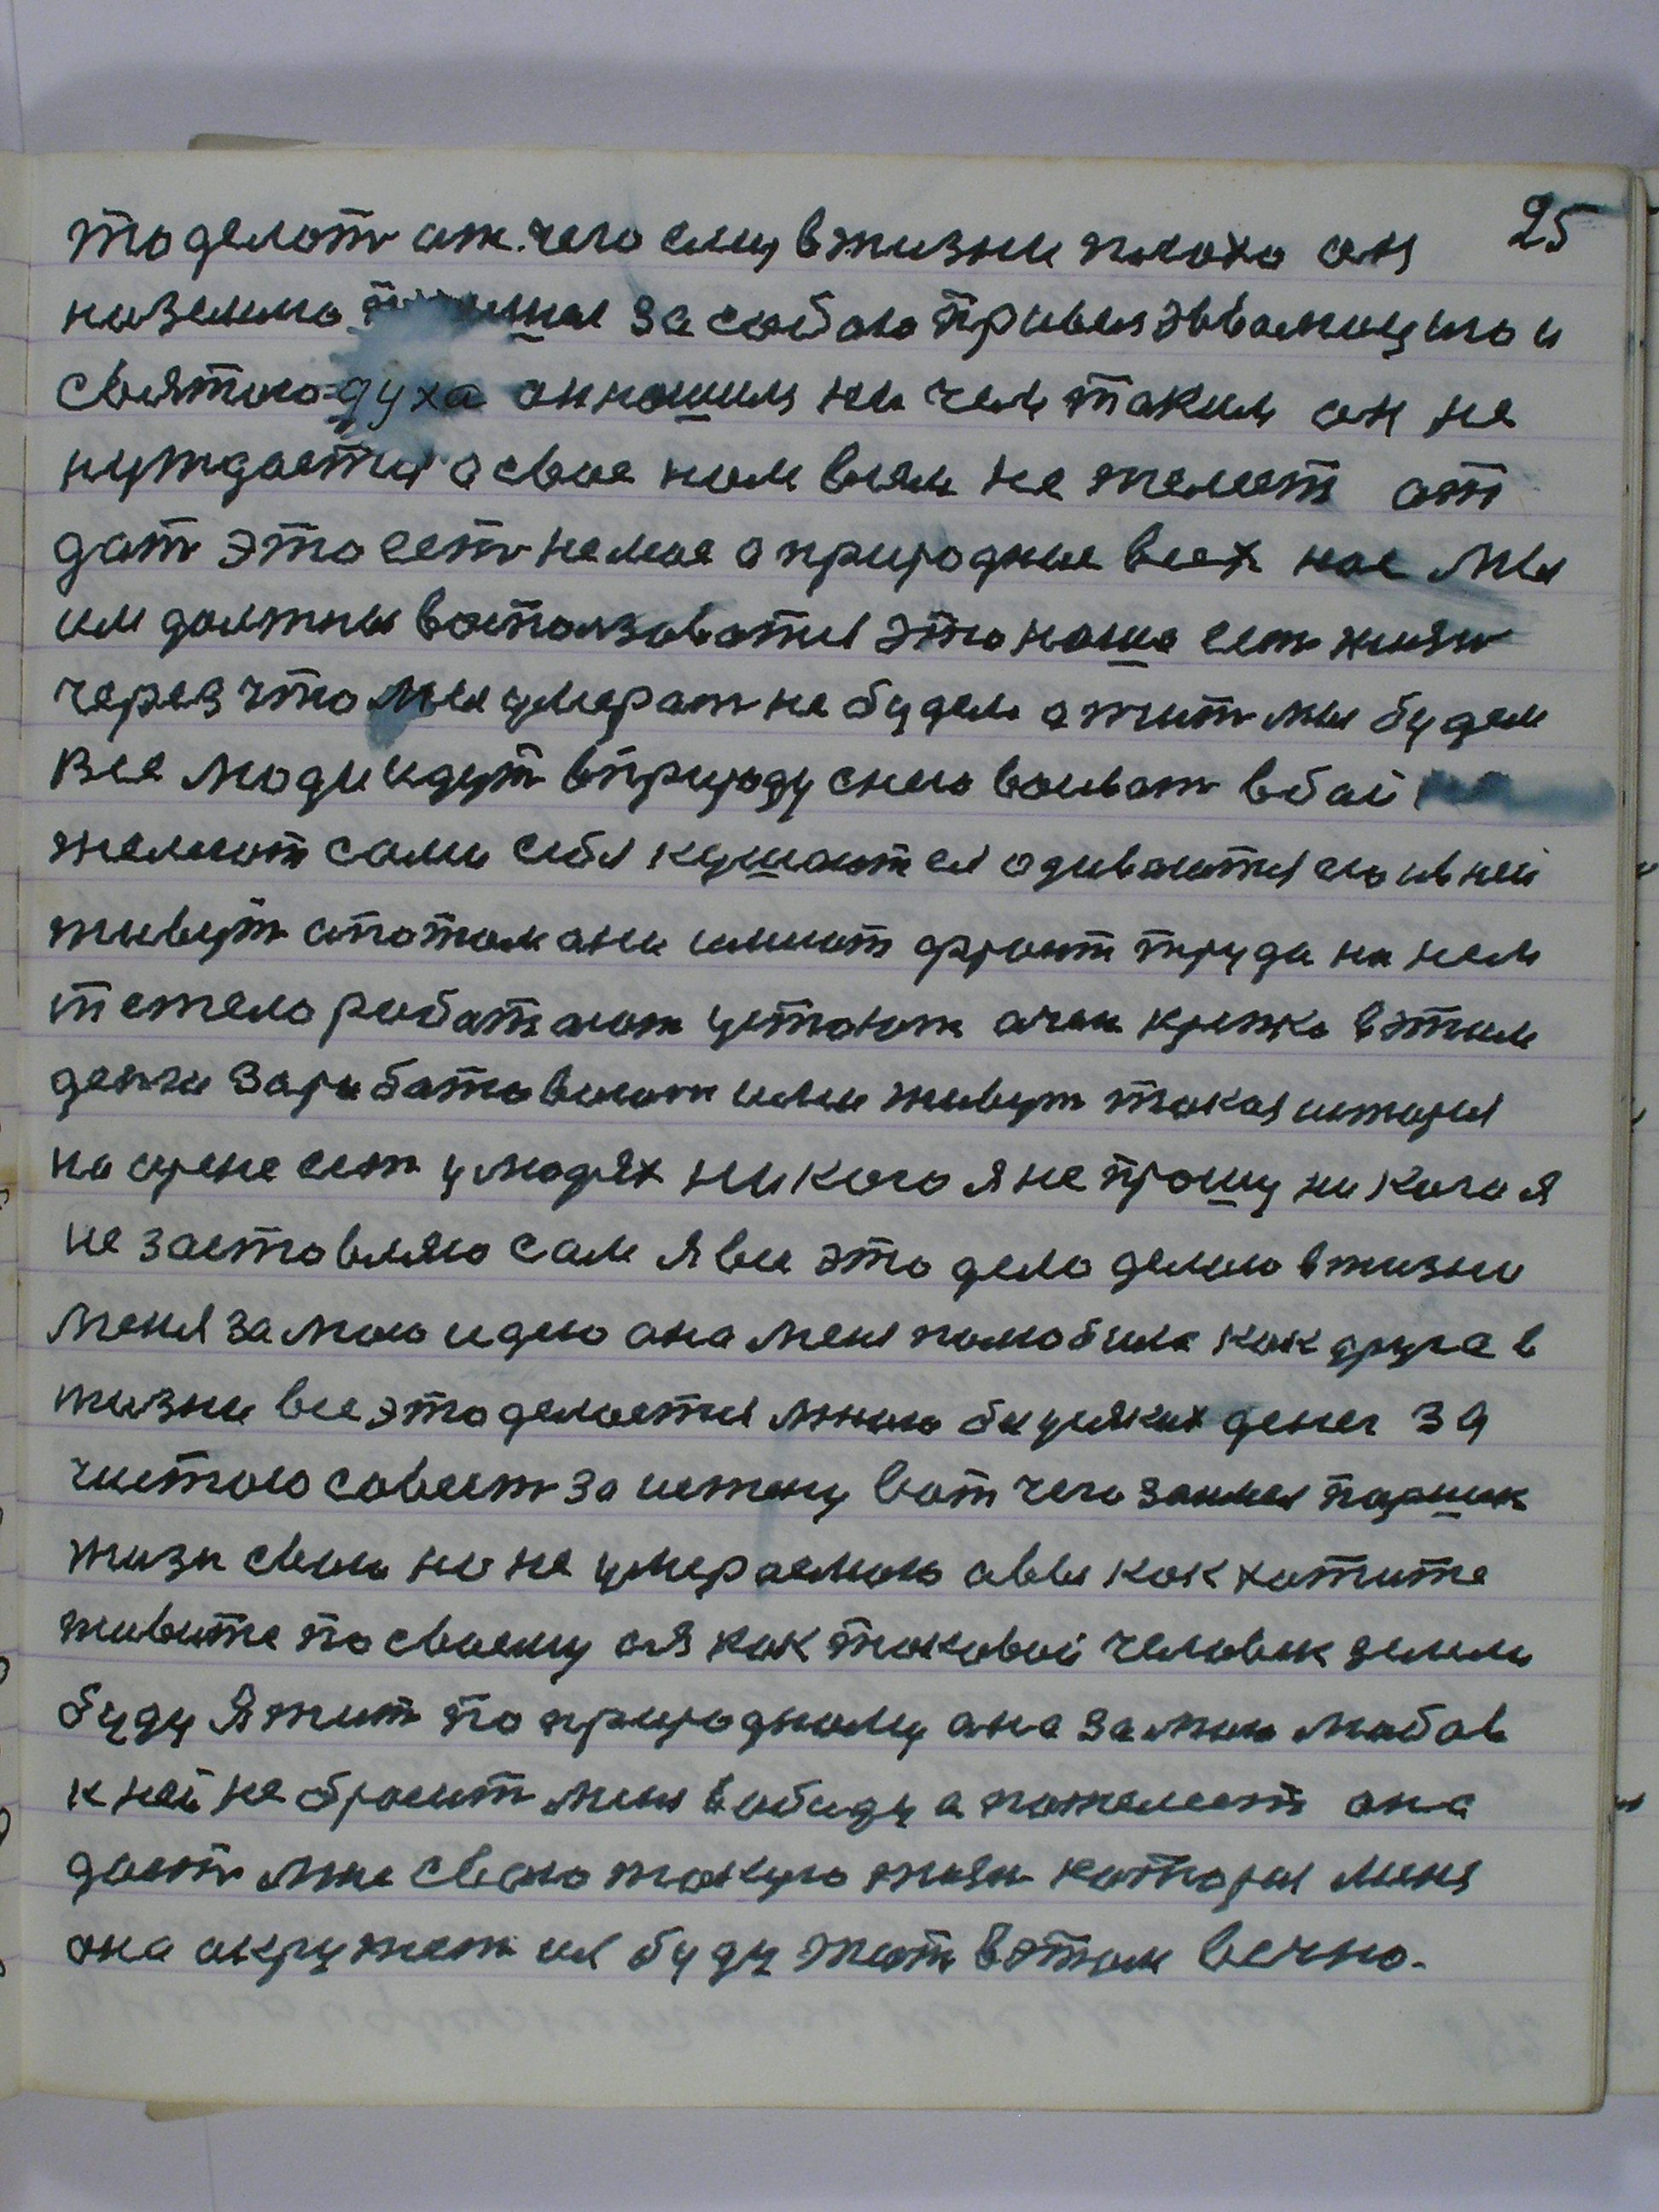 25
то делоть от. чего ему в жизни плохо он
на землю за собою привел эволюцию и
святого духа он нашим ни чем таким он не
нуждается а свое нам всем не жалеет от
дать это есть не мое а природные всех нас мы
им должны воспользоватся это наша есть жизнь
через что мы умерать не будем а жить мы будем
Все люди идут в природу снею воивать в бой
желают сами себя кушаются одиваются ею и в ней
живут а потом они имиют фронт труда на нем
тежело работают устоют очен крепко в этим
денги заработовают ими живут такая история
на арене есть у людях никого я не прошу никого я
не заставляю сам я все это дело делаю в жизни
меня за мою идею она меня полюбила как друга в
жизни все это делается мною биз усяких денег за
чистою совесть за истену вот чего занял паршек
жизн свою но не умераемою а вы как хотите
живите по своему а я как таковой человек земли
буду я жить по природному она за мою любов
к ней не бросит меня в обиду а пожелеет она
дасть мне свою такую жизн которая меня
она окружает и я буду жит в этом вечно.